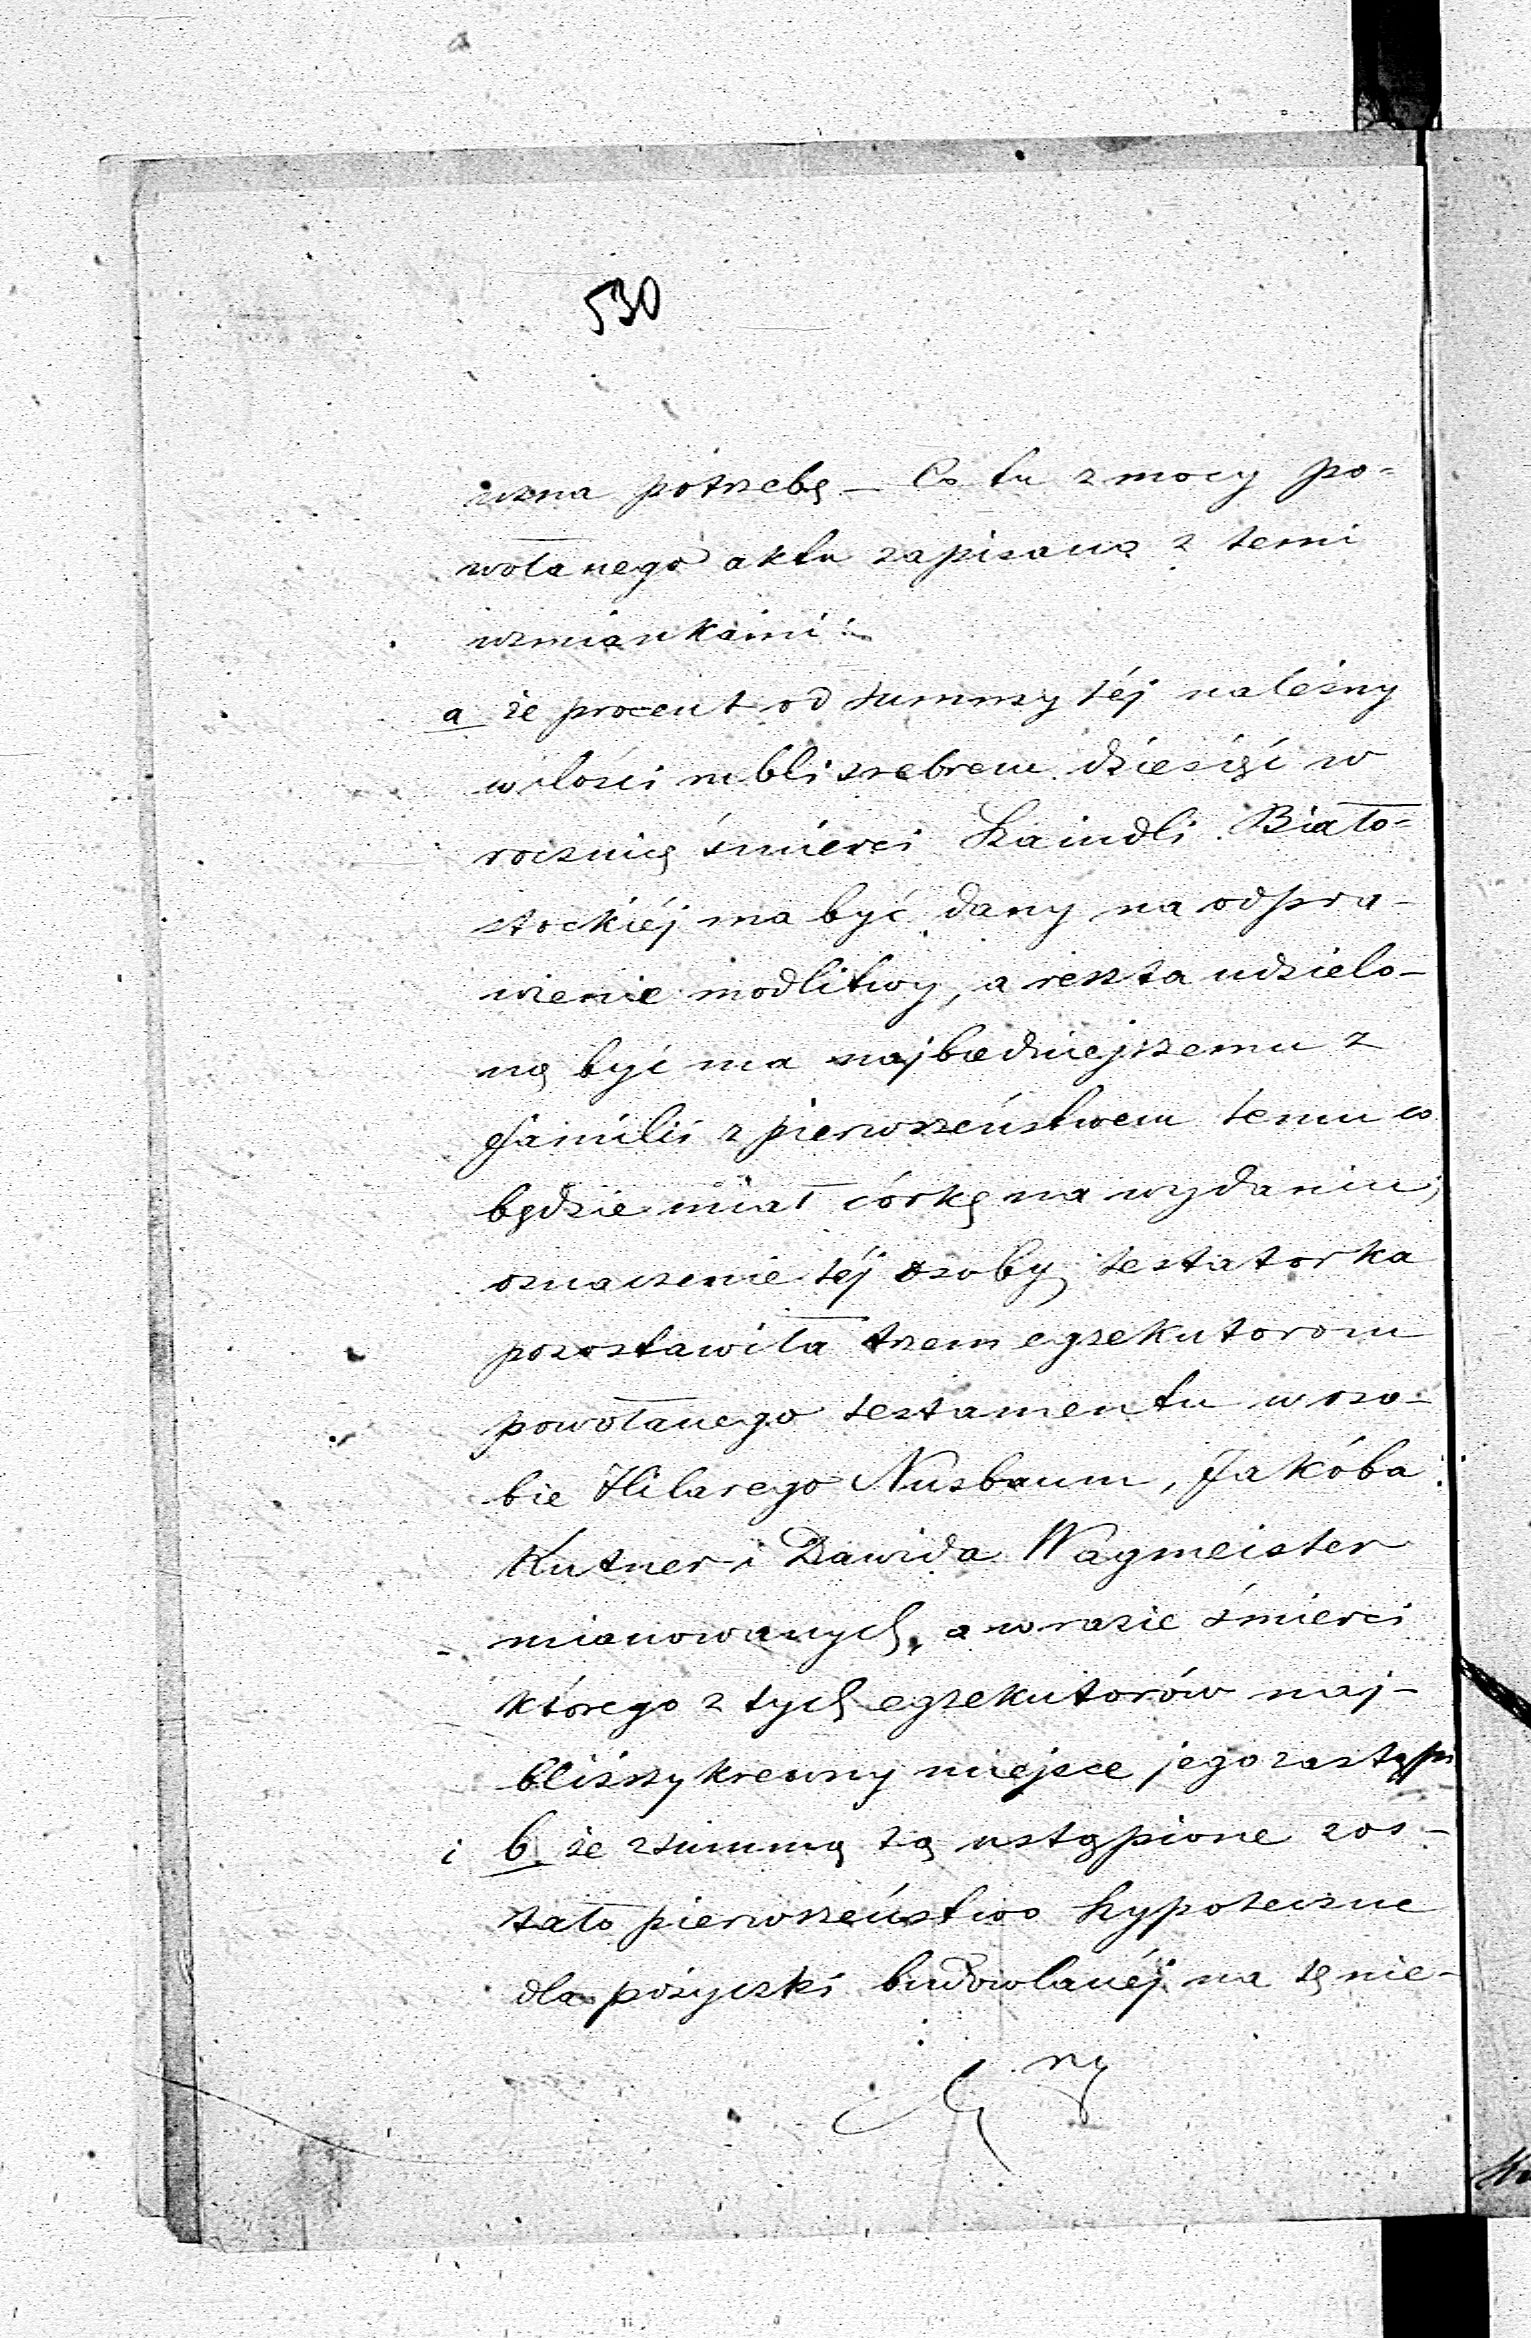 530
uzna potrzebę – Co tu z mocy po=
wołanego aktu zapisano z temi
wzmiankami:
a że procent od summy téj należny
w ilości rubli srebrem dziesięć w
rocznicę śmierci Szaindli Biało=
stockiéj ma być dany na odpra-
wienie modlitwy, a reszta udzielo-
ną być ma najbiedniejszemu z
familii z pierwszeństwem temu co
będzie miał córkę na wydaniu,
oznaczenie téj osoby testatorka
pozostawiła trzem egzekutorom
powołanego testamentu w oso-
bie Hilarego Nusbaum, Jakóba
Kutner i Dawida Wagmeister
mianowanych, a w razie śmierci
którego z tych egzekutorów naj-
bliższy krewny miejsce jego zastąpi
i b, że z summą tą ustąpione zos-
tało pierwszeństwo hypoteczne
dla pożyczki budowlanéj na tę nie-